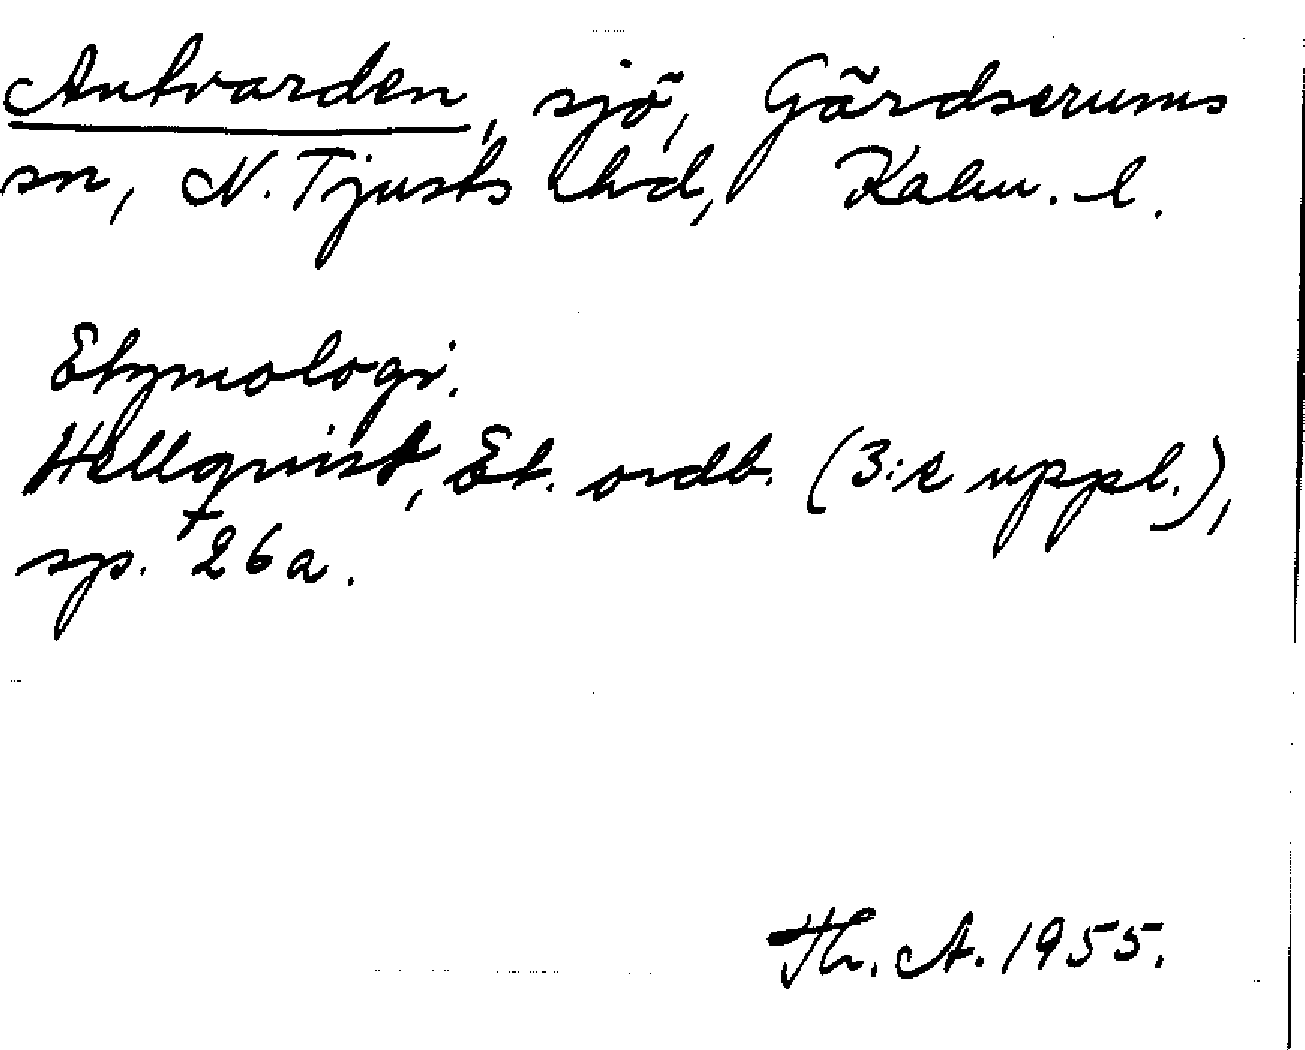 Antvarden, sjö, Gärdserums
sn, N. Tjusts hd, Kalm. l.
Etymologi.
Hellquist, Et. ordb. (3:e uppl.),
sp. 26a.
Th. A. 1955.